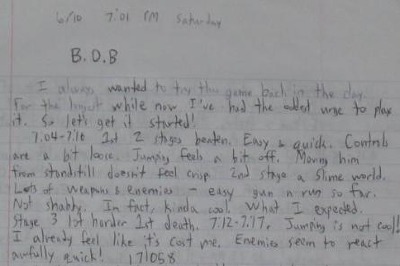 6/10 7:01 PM Saturday
B.O.B
I always wanted to try this game back in the day.
For the longest while now I've had the oddest urge to play
it. So let's get it started!
7:04-7:10 1st 2 stages beaten. Easy & quick. Controls
are a bit loose. Jumping feels a bit off. Moving him
from standstill doesn't feel crisp. 2nd stage a slime world.
Lots of weapons & enemies - easy gun n run so far.
Not shabby. In fact, kinda cool. What I expected.
Stage 3 1st harder 1st death. 7:12-7:17. Jumping is not cool!
I already feel like it's cost me. Enemies seem to react
awfully quick! 171058